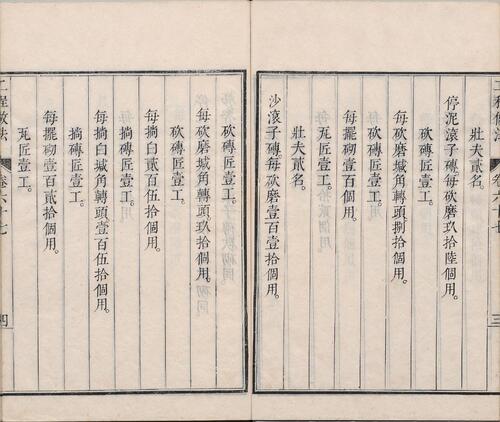 壯夫貳名。
停泥滾子磚。每砍磨玖拾陸個用。
砍磚匠壹工。
每砍磨堿角轉頭捌拾個用。
砍磚匠壹工。
每擺砌壹百個用。
瓦匠壹工。
壯夫貳名。
沙滾子磚。每砍磨壹百壹拾個用。
卷六十七
三
砍磚匠壹工。
每砍磨堿角轉頭玖拾個用。
砍磚匠壹工。
每摛白貳百伍拾個用。
摛磚匠壹工。
每摛白堿角轉頭壹百伍拾個用。
摛磚匠壹工。
每擺砌壹百貳拾個用。
瓦匠壹工。
工程做法
卷六十七
四